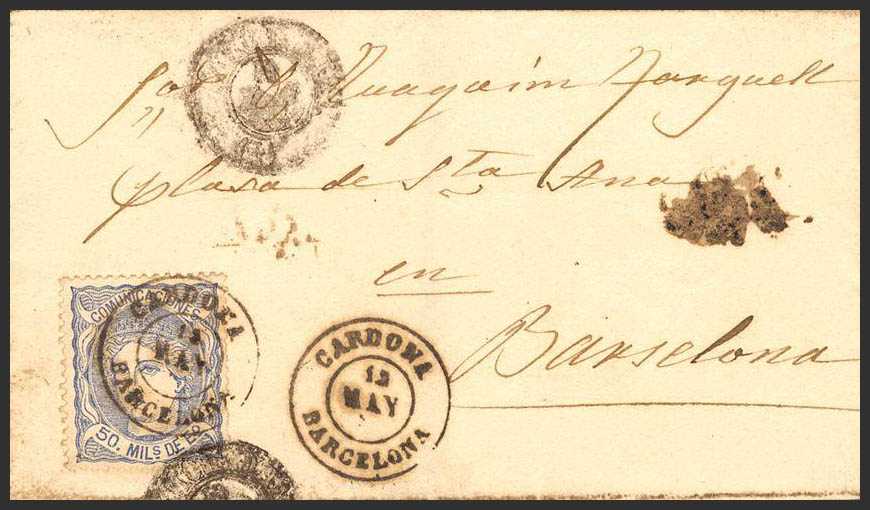 Sor D. Juaquim Torquell
plasa de Sta Ana
en
Barselona
COMUNICACIONES
50. MILS DE Eo
CARDONA
12
MAY
BARCELONA
CARDONA
12
MAY
BARCELONA